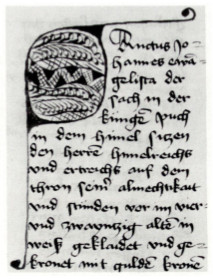 Sanctus Jo-
hannes ewā-
gelista der
sach in der
künge puch
in dem himel sitzen
den herrē himelreichs
und ertreichs auf dem
thron seinr almechtikait
und stunden vor im vier-
und zwaintzig altē in
weiß geklaidet und ge-
krönet mit guldē kronē